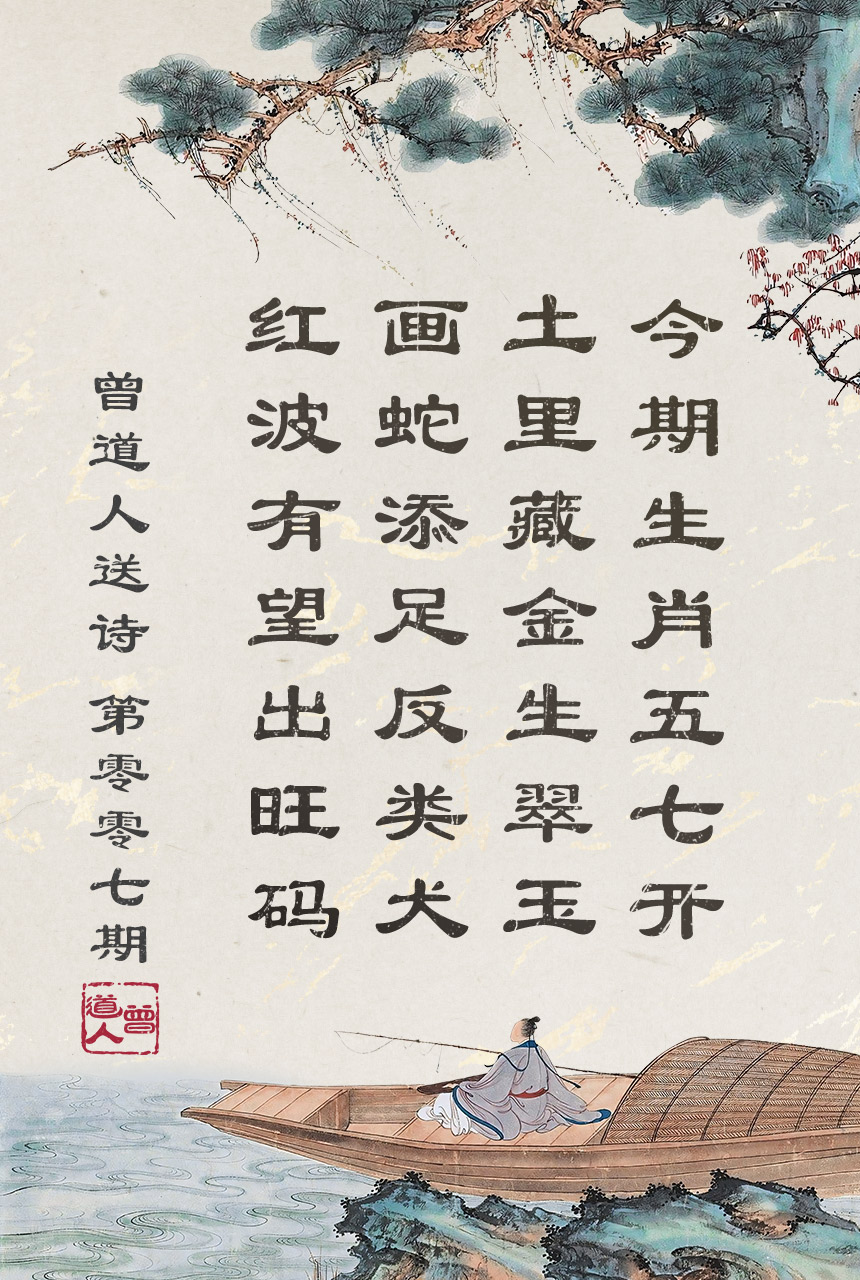 今期生肖五七开
土里藏金生翠玉
画蛇添足反类犬
红波有望出旺码
曾道人送诗 第零零七期
曾道人